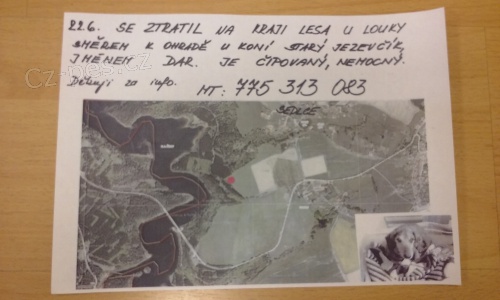 22.6. SE ZTRATIL NA KRAJI LESA U LOUKY
SMĚREM K OHRADĚ U KONÍ STARÝ JEZEVČÍK,
JMÉNEM DAR. JE ČIPOVANÝ, NEMOCNÝ.
Děkuji za info. MT: 775 313 083
SEDLCE